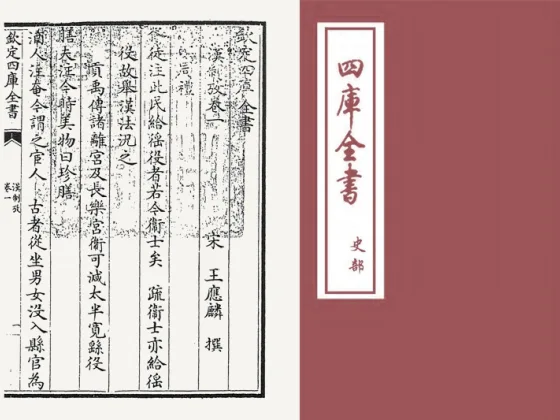 欽定四庫全書
漢制攷卷一
宋 王應麟 撰
周禮
胥徒注此民給徭役者若今衞士矣 疏衞士亦給徭
役故舉漢法況之
貢禹傳諸離宮及長樂宮衞可減太半寛繇役
膳夫注今時美物曰珍膳
酒人注奄今謂之宦人 古者從坐男女没入縣官為
欽定四庫全書
漢制攷
卷一
一
四庫全書
史部